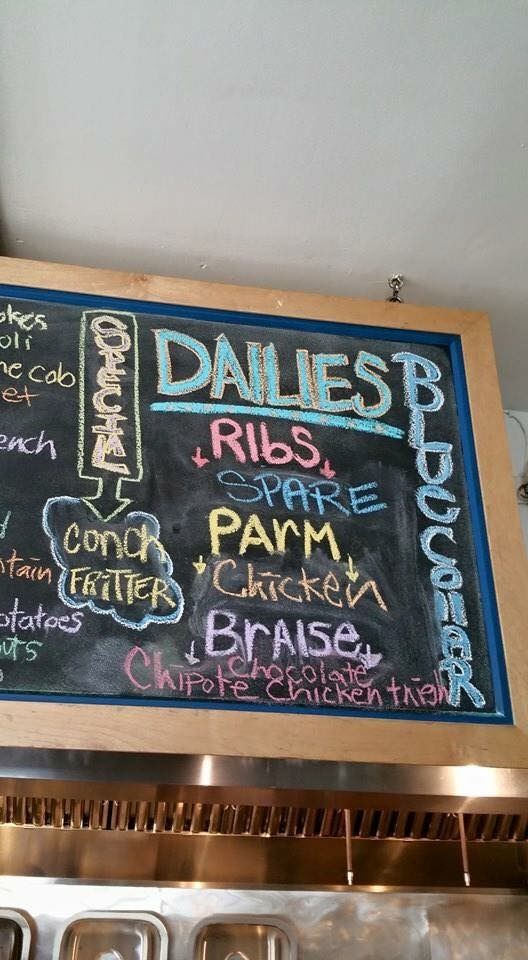 okes
oli
he cob
et
ench
tain
otatoes
uts
SPECIAL
CONCH
FRITTER
DAILIES
RIbS
SPARE
PARM
Chicken
BRAISE
Chocolate
Chipote Chicken thigh
BLUE COllAR